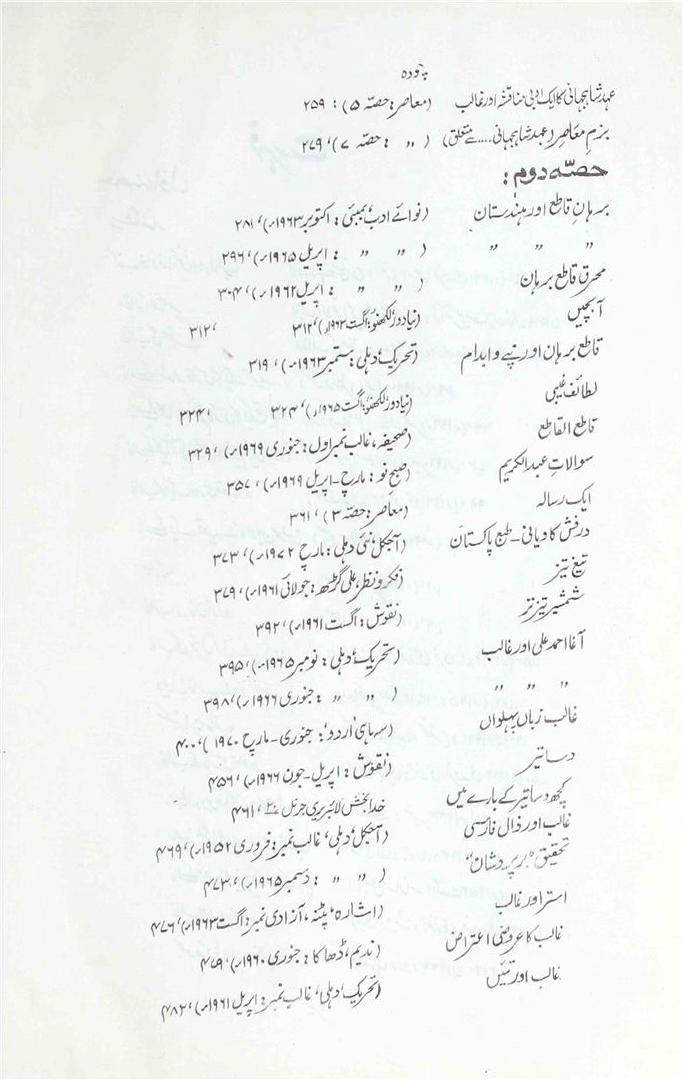 چودہ
عہد شاہجہانی کا ایک ادبی مناقشہ اور غالب (معاصر: حصّہ ۵) : ۲۵۹
بزمِ معاصر (عہد شاہجہانی.....سے متعلق) ( ״ : حصّہ ۷)، ۲۷۹
حصّہ دوم:
برہانِ قاطع اور ہندستان (نوائے ادب، بمبئی: اکتوبر ۱۹۶۳ء)، ۲۸۱
״ ״ ״ ( ״ ״ : اپریل ۱۹۶۵ء)، ۲۹۶
محرق قاطع برہان ( ״ ״ : اپریل ۱۹۶۲ء)، ۳۰۴
آبچیں (نیا دور لکھنؤ: اگست ۱۹۶۳ء)، ۳۱۲ ۳۱۲،
قاطع برہان اور نپے و ابدام (تحریک، دہلی: ستمبر ۱۹۶۳ء)، ۳۱۹
لطائف غیبی (نیا دور لکھنؤ: اگست ۱۹۶۵ء)، ۳۲۴ ۳۲۴،
قاطع القاطع (صحیفہ، غالب نمبر اول: جنوری ۱۹۶۹ء)، ۳۲۹
سوالاتِ عبدالکریم (صبح نو: مارچ-اپریل ۱۹۶۹ء)، ۳۵۷
ایک رسالہ (معاصر: حصّہ ۳)، ۳۶۱
درفش کاویانی۔طبع پاکستان (آجکل، نئی دہلی: مارچ ۱۹۷۲ء)، ۳۷۳
تیغ تیز (فکر و نظر، علی گڑھ: جولائی ۱۹۶۱ء)، ۳۷۹
شمشیر تیز تر (نقوش: اگست ۱۹۶۱ء)، ۳۹۲
آغا احمد علی اور غالب (تحریک، دہلی: نومبر ۱۹۶۵ء)، ۳۹۵
״ ״ ״ ( ״ ״ : جنوری ۱۹۶۶ء)، ۳۹۸
غالب زبانِ پہلواں (سہ ماہی 'اردو': جنوری-مارچ ۱۹۷۰)، ۴۰۰
دساتیر (نقوش: اپریل-جون ۱۹۶۶ء)، ۴۵۶
کچھ دساتیر کے بارے میں خدا بخش لائبریری جرنل ۲۰، ۴۶۱
غالب اور ذال فارسی (آجکل، دہلی، غالب نمبر: فروری ۱۹۵۲ء)، ۴۶۹
تحقیق "ہرپردشاں" ( ״ ״ : دسمبر ۱۹۶۵ء)، ۴۷۳
استر اور غالب (اشارہ، پٹنہ، آزادی نمبر: اگست ۱۹۶۳ء)، ۴۷۶
غالب کا عروضی اعتراض (ندیم، ڈھاکا: جنوری ۱۹۶۰ء)، ۴۷۹
غالب اور تئیں (تحریک، دہلی، غالب نمبر: اپریل ۱۹۶۱ء)، ۴۸۲